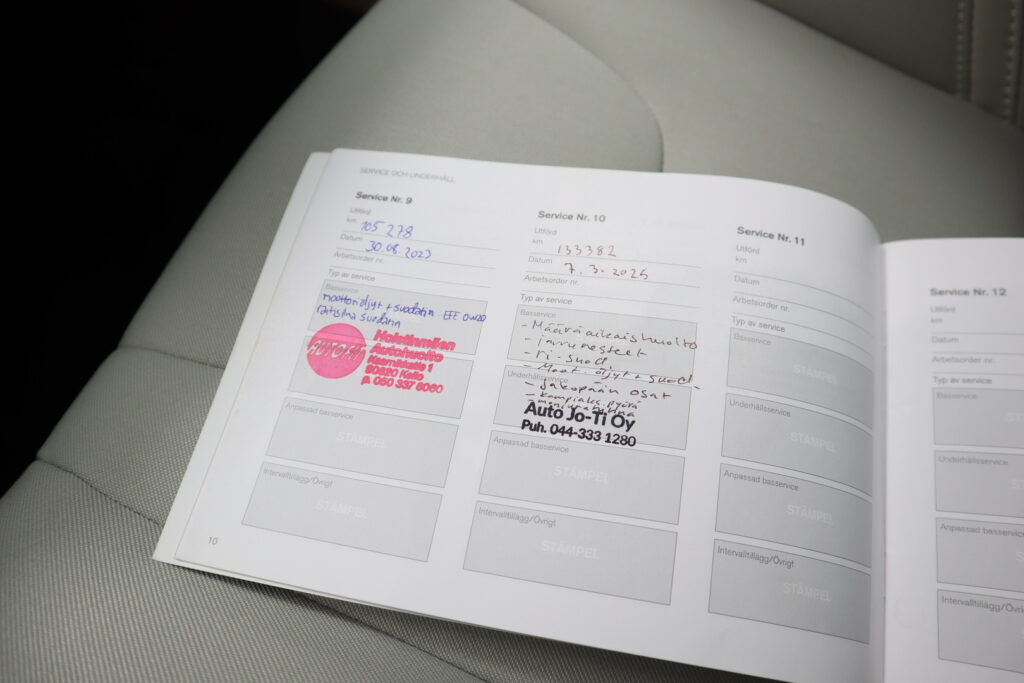 SERVICE OCH UNDERHÅLL
Service Nr. 9
Utförd
km 105 278
Datum 30.08.2023
Arbetsorder nr.
Typ av service
Basservice
moottoriöljyt + suodatin EFE 0W20
raitisilma suodatin
AUTOFIT
Holstinmäen
Autohuolto
90820 Kello
p. 050 337 6060
Anpassad basservice
STÄMPEL
Intervalltillägg/Övrigt
STÄMPEL
10
Service Nr. 10
Utförd
km 133382
Datum 7.3.2025
Arbetsorder nr.
Typ av service
Basservice
- Määräaikaishuolto
- jarrunesteet
- ri-suod.
- Moot. öljyt + suod.
Underhållsservice
- Jakopään osat
- kampiaks. pyörä
Auto Jo-Ti Oy
Puh. 044-333 1280
Anpassad basservice
STÄMPEL
Intervalltillägg/Övrigt
STÄMPEL
Service Nr. 11
Utförd
km
Datum
Arbetsorder nr.
Typ av service
Basservice
STÄMPEL
Underhållsservice
STÄMPEL
Anpassad basservice
STÄMPEL
Intervalltillägg/Övrigt
STÄMPEL
Service Nr. 12
Utförd
km
Datum
Arbetsorder nr.
Typ av service
Basservice
Underhållsservice
Anpassad basservice
Intervalltillägg/Övrigt